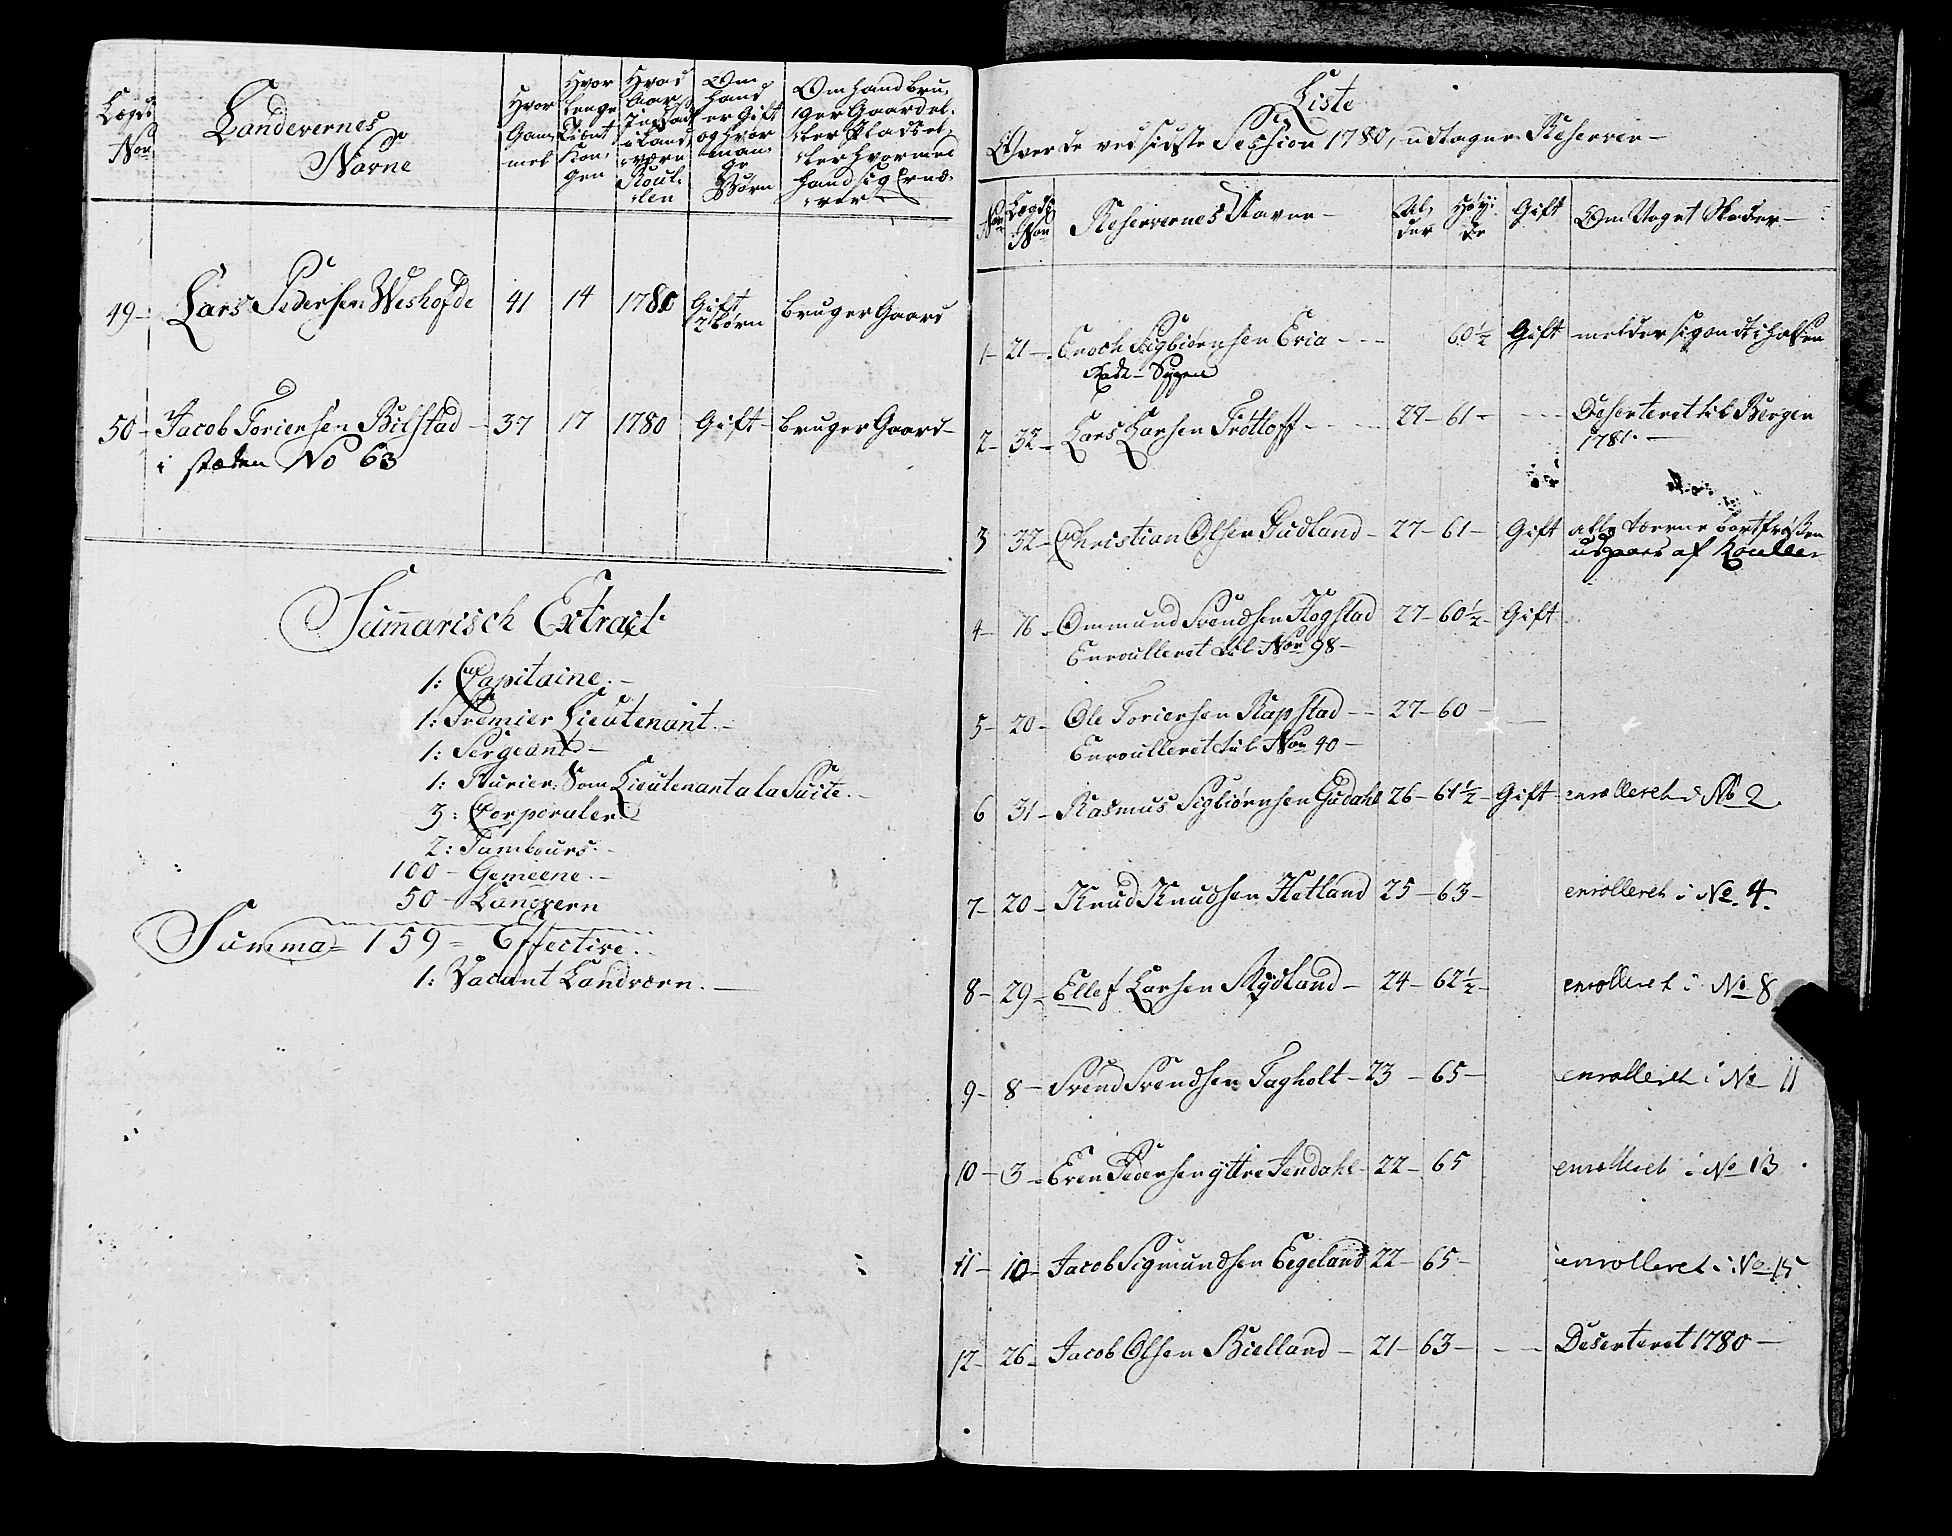 Lægds
Nor
Landevernes
Navne
Hvor
Gam,
mel
Hvor
lenge
Tient
Kon,
gen
Hvad
Aar
Indsadt
i Land,
værn
Roul,
len
Om
hand
er Gift
og hvor
man,
ge
Børn
Om hand bru,
ger Gaard el,
ler Pladset,
ler hvormed
hand sig Ernæ,
rer
49 Lars Pedersen Weshofde 41 14 1780 Gift 2 børn bruger Gaard
50 Jacob Toriersen Bilstad 37 17 1780 Gift bruger Gaard
i stæden No 63
Summarisch Extract
1: Capitaine
1: Premier Lieutenant
1: Sergeant
1: Furier, Som Lieutenant a la Suite
3: Corporaler
2: Tambours
100 Gemeene
50 Landvern
Summa 159 Effective
1: Vacant Landværn
Liste
Over de ved sidste Session 1780, udtagne Reserver
Nor Lægds Nor Reservernes Navne Al, der Høy, de Gift Om Noget Skader
1 21 Enoch Sigbiørnsen Eria 60½ Gift melder sig ondt i Hofsen
Radt Sygen
2 32 Lars Larsen Trøtloff 27 61 Deserteret til Bergen
1781
3 32 Christian Olsen Gudland 27 61 Gift alle tæerne bortfrossen
udgaar af Roullen
4 16 Ommund Svendsen Kogstad 27 60½ Gift
Enroulleret til Nor 98
5 20 Ole Toriersen Rapstad 27 60
Enroulleret til Nor 40
6 31 Rasmus Sigbiørnsen Gudahl 26 61½ Gift enrolleret i No 2
7 20 Knud Knudsen Hetland 25 63 enrolleret i No 4
8 29 Ellef Larsen Rydland 24 62½ enrolleret i No 8
9 8 Svend Svendsen Tagholt 23 65 enrolleret i No 11
10 3 Even Pedersen yttre Jendahl 22 65 enrolleret i No 13
11 10 Jacob Sigmundsen Eegeland 22 65 enrolleret i No 15
12 26 Jacob Olsen Bielland 21 63 Deserteret 1780